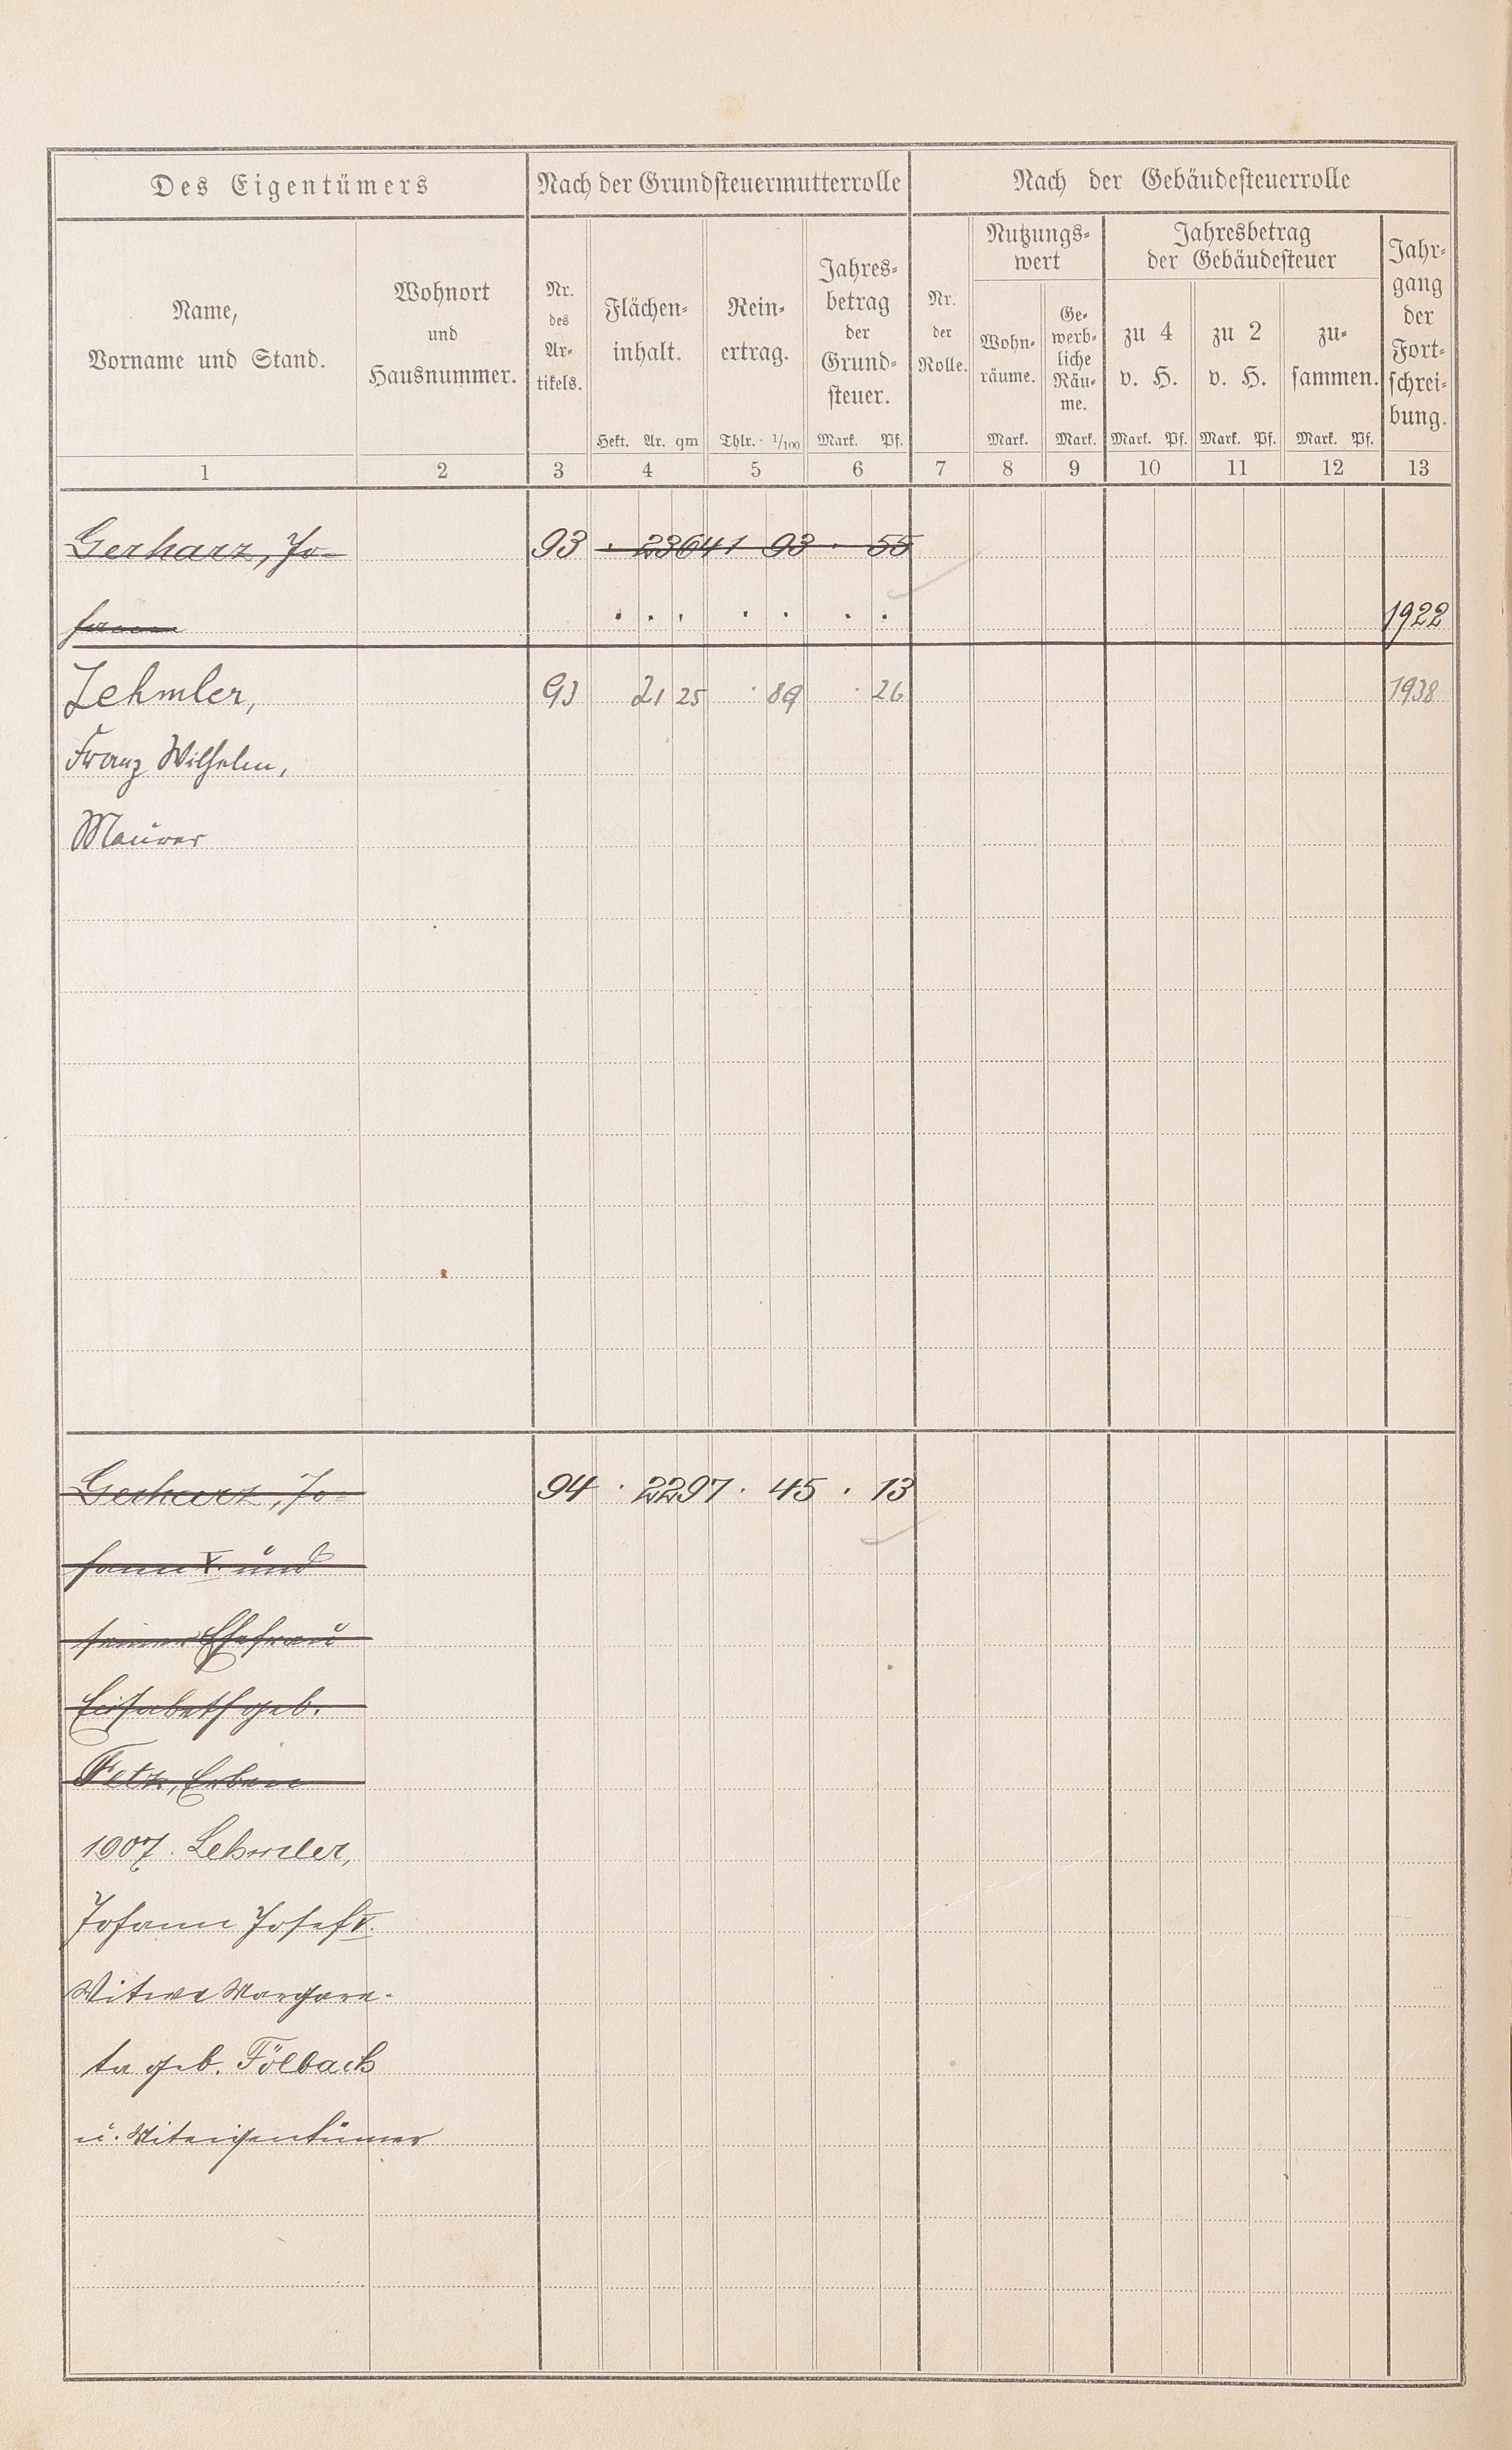 Des Eigentümers Nach der Grundsteuermutterrolle Nach der Gebäudesteuerrolle
Name, Vorname und Stand. Wohnort und Hausnummer. Nr. des Artikels. Flächeninhalt. Reinertrag. Jahresbetrag der Grundsteuer. Nr. der Rolle. Nutzungswert Wohnräume. Gewerbliche Räume. Jahresbetrag der Gebäudesteuer zu 4 v. H. zu 2 v. H. zusammen. Jahrgang der Fortschreibung.
Hekt. Ar. qm Thlr. 1/100 Mark. Pf. Mark. Mark. Mark. Pf. Mark. Pf. Mark. Pf.
1 2 3 4 5 6 7 8 9 10 11 12 13
Gerharz, Jo- 93 · 23 64 1 93 · 55
hann · · · · · · · 1922
Lehmler, 93 21 25 · 89 · 26 1938
Franz Wilhelm,
Maurer
Gerharz, Jo- 94 · 22 97 · 45 · 13
hann V. und
seiner Ehefrau
Elisabeth geb.
Fetz, Erben
1907. Lehmler,
Johann Josef V.
Witwe Margare-
ta geb. Fölbach
u. Miteigentümer